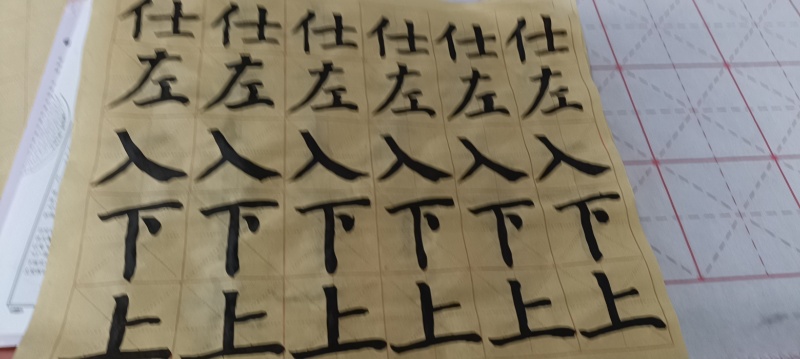 仕仕仕仕仕仕
左左左左左左
入入入入入入
下下下下下下
上上上上上上